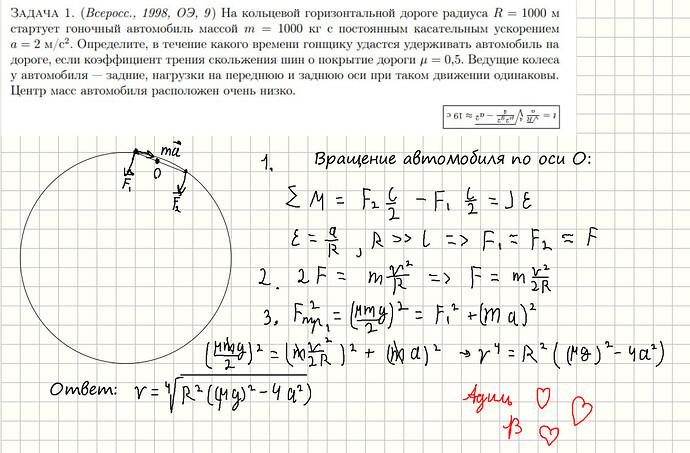 ЗАДАЧА 1. (Всеросс., 1998, ОЭ, 9) На кольцевой горизонтальной дороге радиуса R = 1000 м
стартует гоночный автомобиль массой m = 1000 кг с постоянным касательным ускорением
a = 2 м/с². Определите, в течение какого времени гонщику удастся удерживать автомобиль на
дороге, если коэффициент трения скольжения шин о покрытие дороги μ = 0,5. Ведущие колеса
у автомобиля — задние, нагрузки на переднюю и заднюю оси при таком движении одинаковы.
Центр масс автомобиля расположен очень низко.
≈ 19 с
ma⃗
O
F₁
F₂
1. Вращение автомобиля по оси О:
Σ M = F₂ l/2 - F₁ l/2 = J ε
ε = a/R , R >> l => F₁ = F₂ = F
2. 2F = m v²/R => F = m v²/2R
3. F²тр₁ = (μmg/2)² = F₁² + (ma)²
(μmg/2)² = (m v²/2R)² + (ma)² → v⁴ = R²((μg)² - 4a²)
Ответ: v = ⁴√R²((μg)² - 4a²)